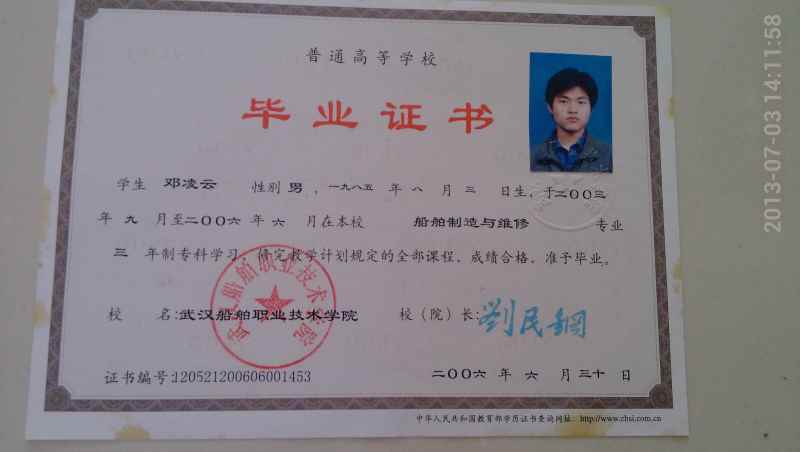 普通高等学校
毕业证书
学生 邓凌云 性别 男，一九八五 年 八 月 三 日生，于二〇〇三
年 九 月至二〇〇六 年 六 月在本校 船舶制造与维修 专业
三 年制专科学习，修完教学计划规定的全部课程，成绩合格，准予毕业。
校 名:武汉船舶职业技术学院 校（院）长:劉民鋼
武汉船舶职业技术学院
证书编号:120521200606001453 二〇〇六 年 六 月 三十 日
中华人民共和国教育部学历证书查询网址: http://www.chsi.com.cn
2013-07-03 14:11:58